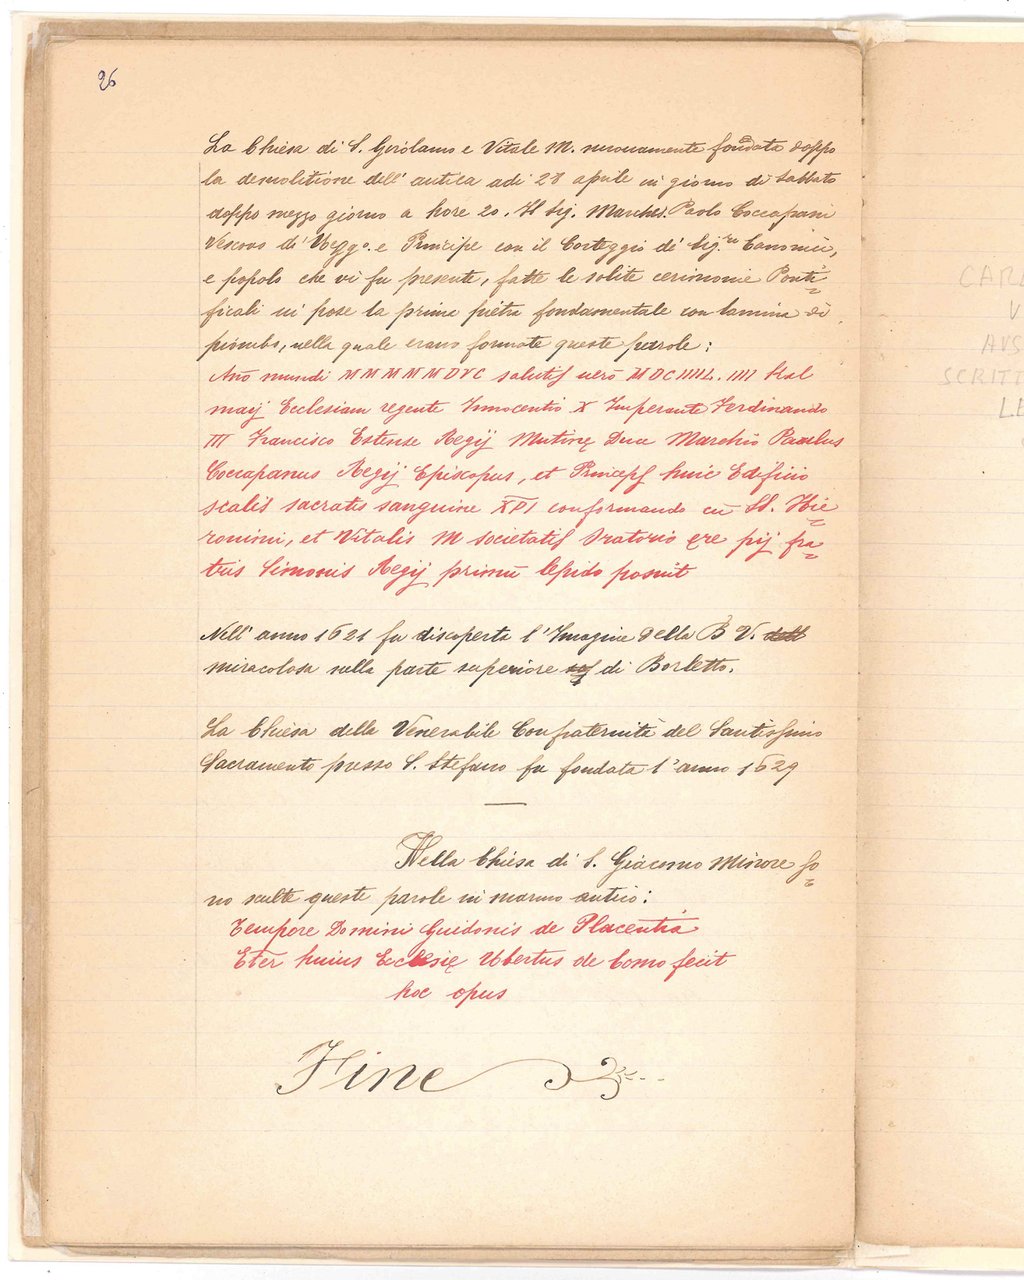 26
La Chiesa di S. Girolamo e Vitale M. nuovamente fondata doppo
la demolitione dell' antica adi 28 aprile in giorno di Sabbato
doppo mezzo giorno a hore 20. Il Sig. Marches. Paolo Coccapani
Vescovo di Reggo. e Principe con il Corteggio de' Sig.ri Canonici,
e popolo che vi fu presente, fatte le solite cerimonie Ponti=
ficali vi pose la prima pietra fondamentale con lamina di
piombo, nella quale erano formate queste parole:
Año mundi MMMMMDVC salutis verò MDCIIIIL. IIII Kal
maij Ecclesiam regente Innocentio X Imperante Ferdinando
III Francisco Estense Regij Mutinę Duce Marchio Paulus
Coccapanus Regij Episcopus, et Princeps huic Edificio
scalis sacratis sanguine XPI conformando cū SS. Hie=
ronimi, et Vitalis M societatis Oratorio ęre pij fra=
tris Simonis Regij primū lapide posuit
Nell' anno 1621 fu discoperta l'Imagine della B V.
miracolosa nella parte superiore di Borletto.
La Chiesa della Venerabile Confraternità del Santissimo
Sacramento presso S. Stefano fu fondata l'anno 1629
Nella Chiesa di S. Giacomo Minore so=
no sculte queste parole in marmo antico:
Tempore Domini Guidonis de Placentia
Eter huius Ecclesię Ubertus de Como fecit
hoc opus
Fine
CAR
V
AVS
SCRITT
LE